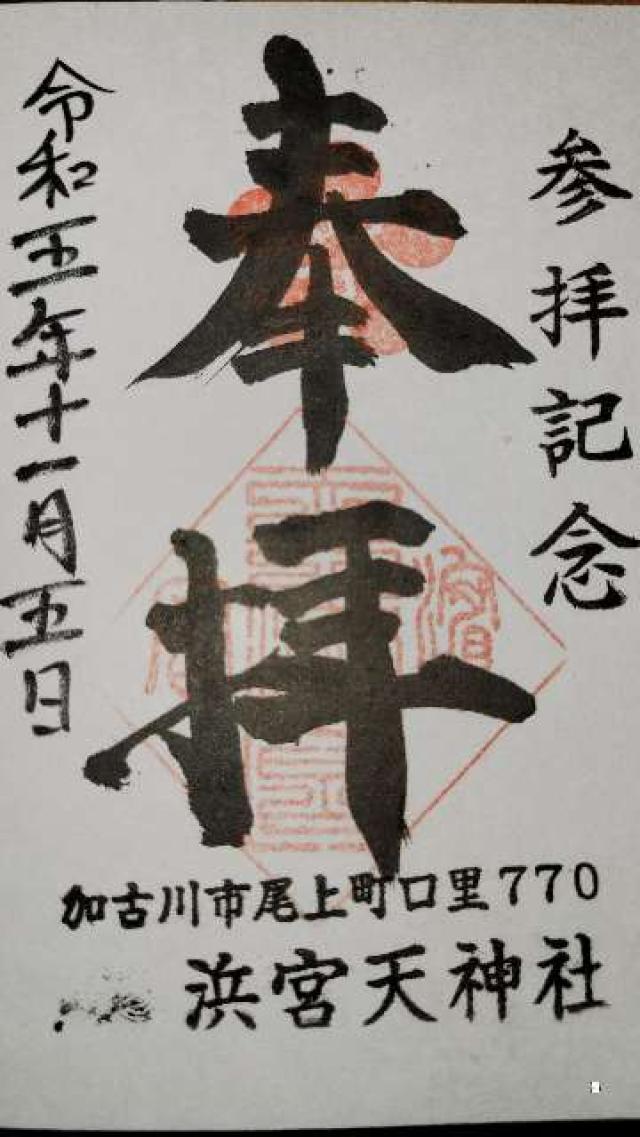 参拝記念
奉拝
令和五年十一月五日
加古川市尾上町口里770
浜宮天神社